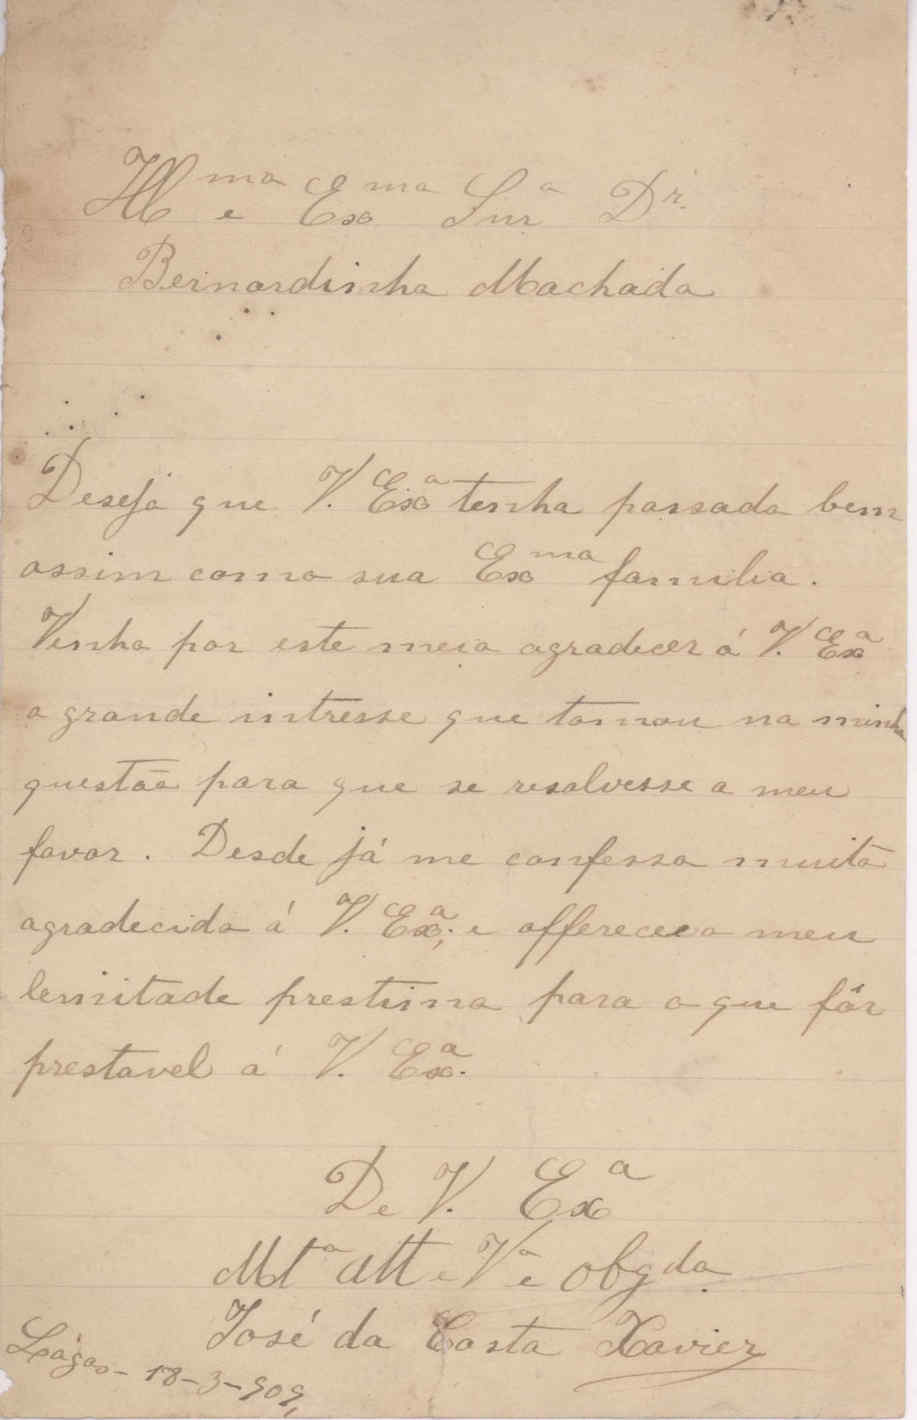 Illmo e Exmo Snr Dr.
Bernardinho Machado
Desejo que V. Exa tenha passado bem
assim como sua Exma familia.
Venho por este meio agradecer á V. Exa
o grande intresse que tomou na minha
questão para que se resolvesse a meu
favor. Desde já me confesso muito
agradecido á V. Exa; e offereceo meu
lemitade prestimo para o que fôr
prestavel á V. Exa.
De V. Exa
Mto Att e Vor e obgdo.
José da Costa Xavier
Lagos - 18-3-909,